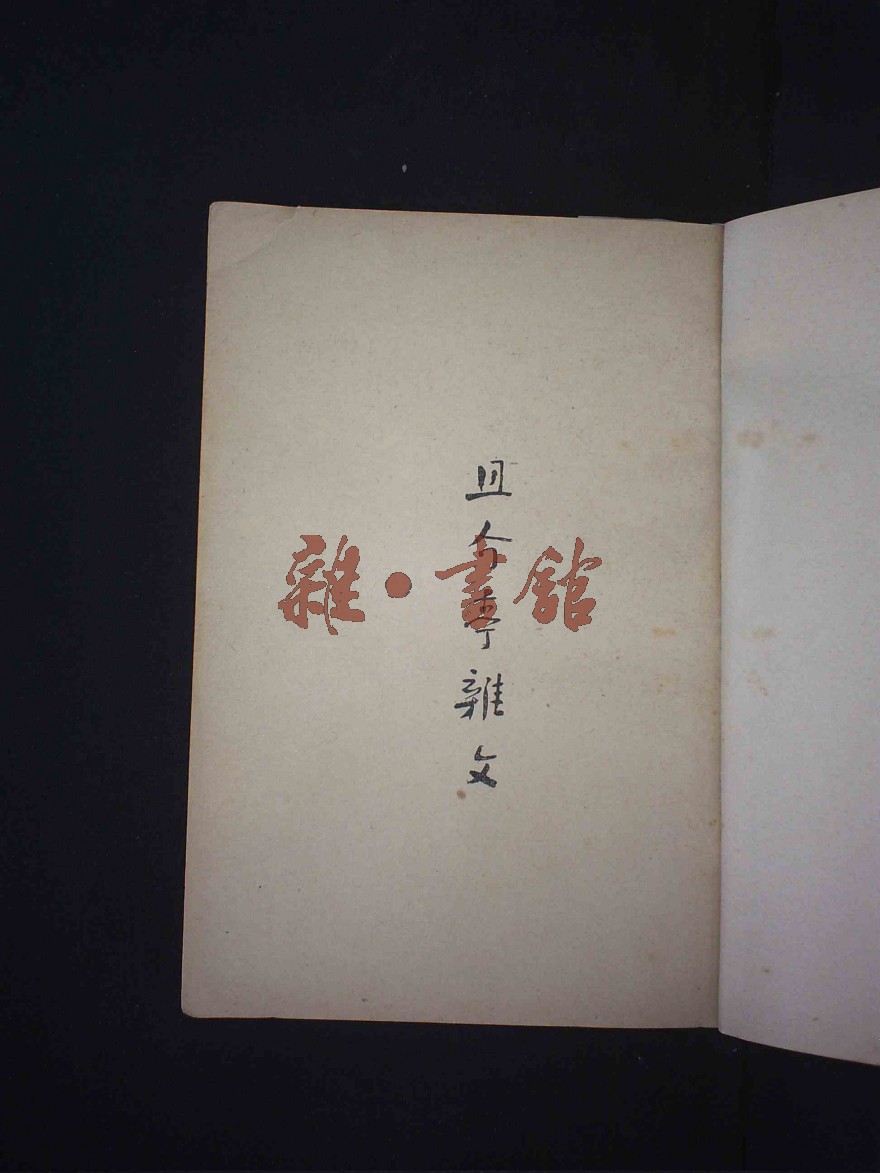 且介亭雜文
雜·書館